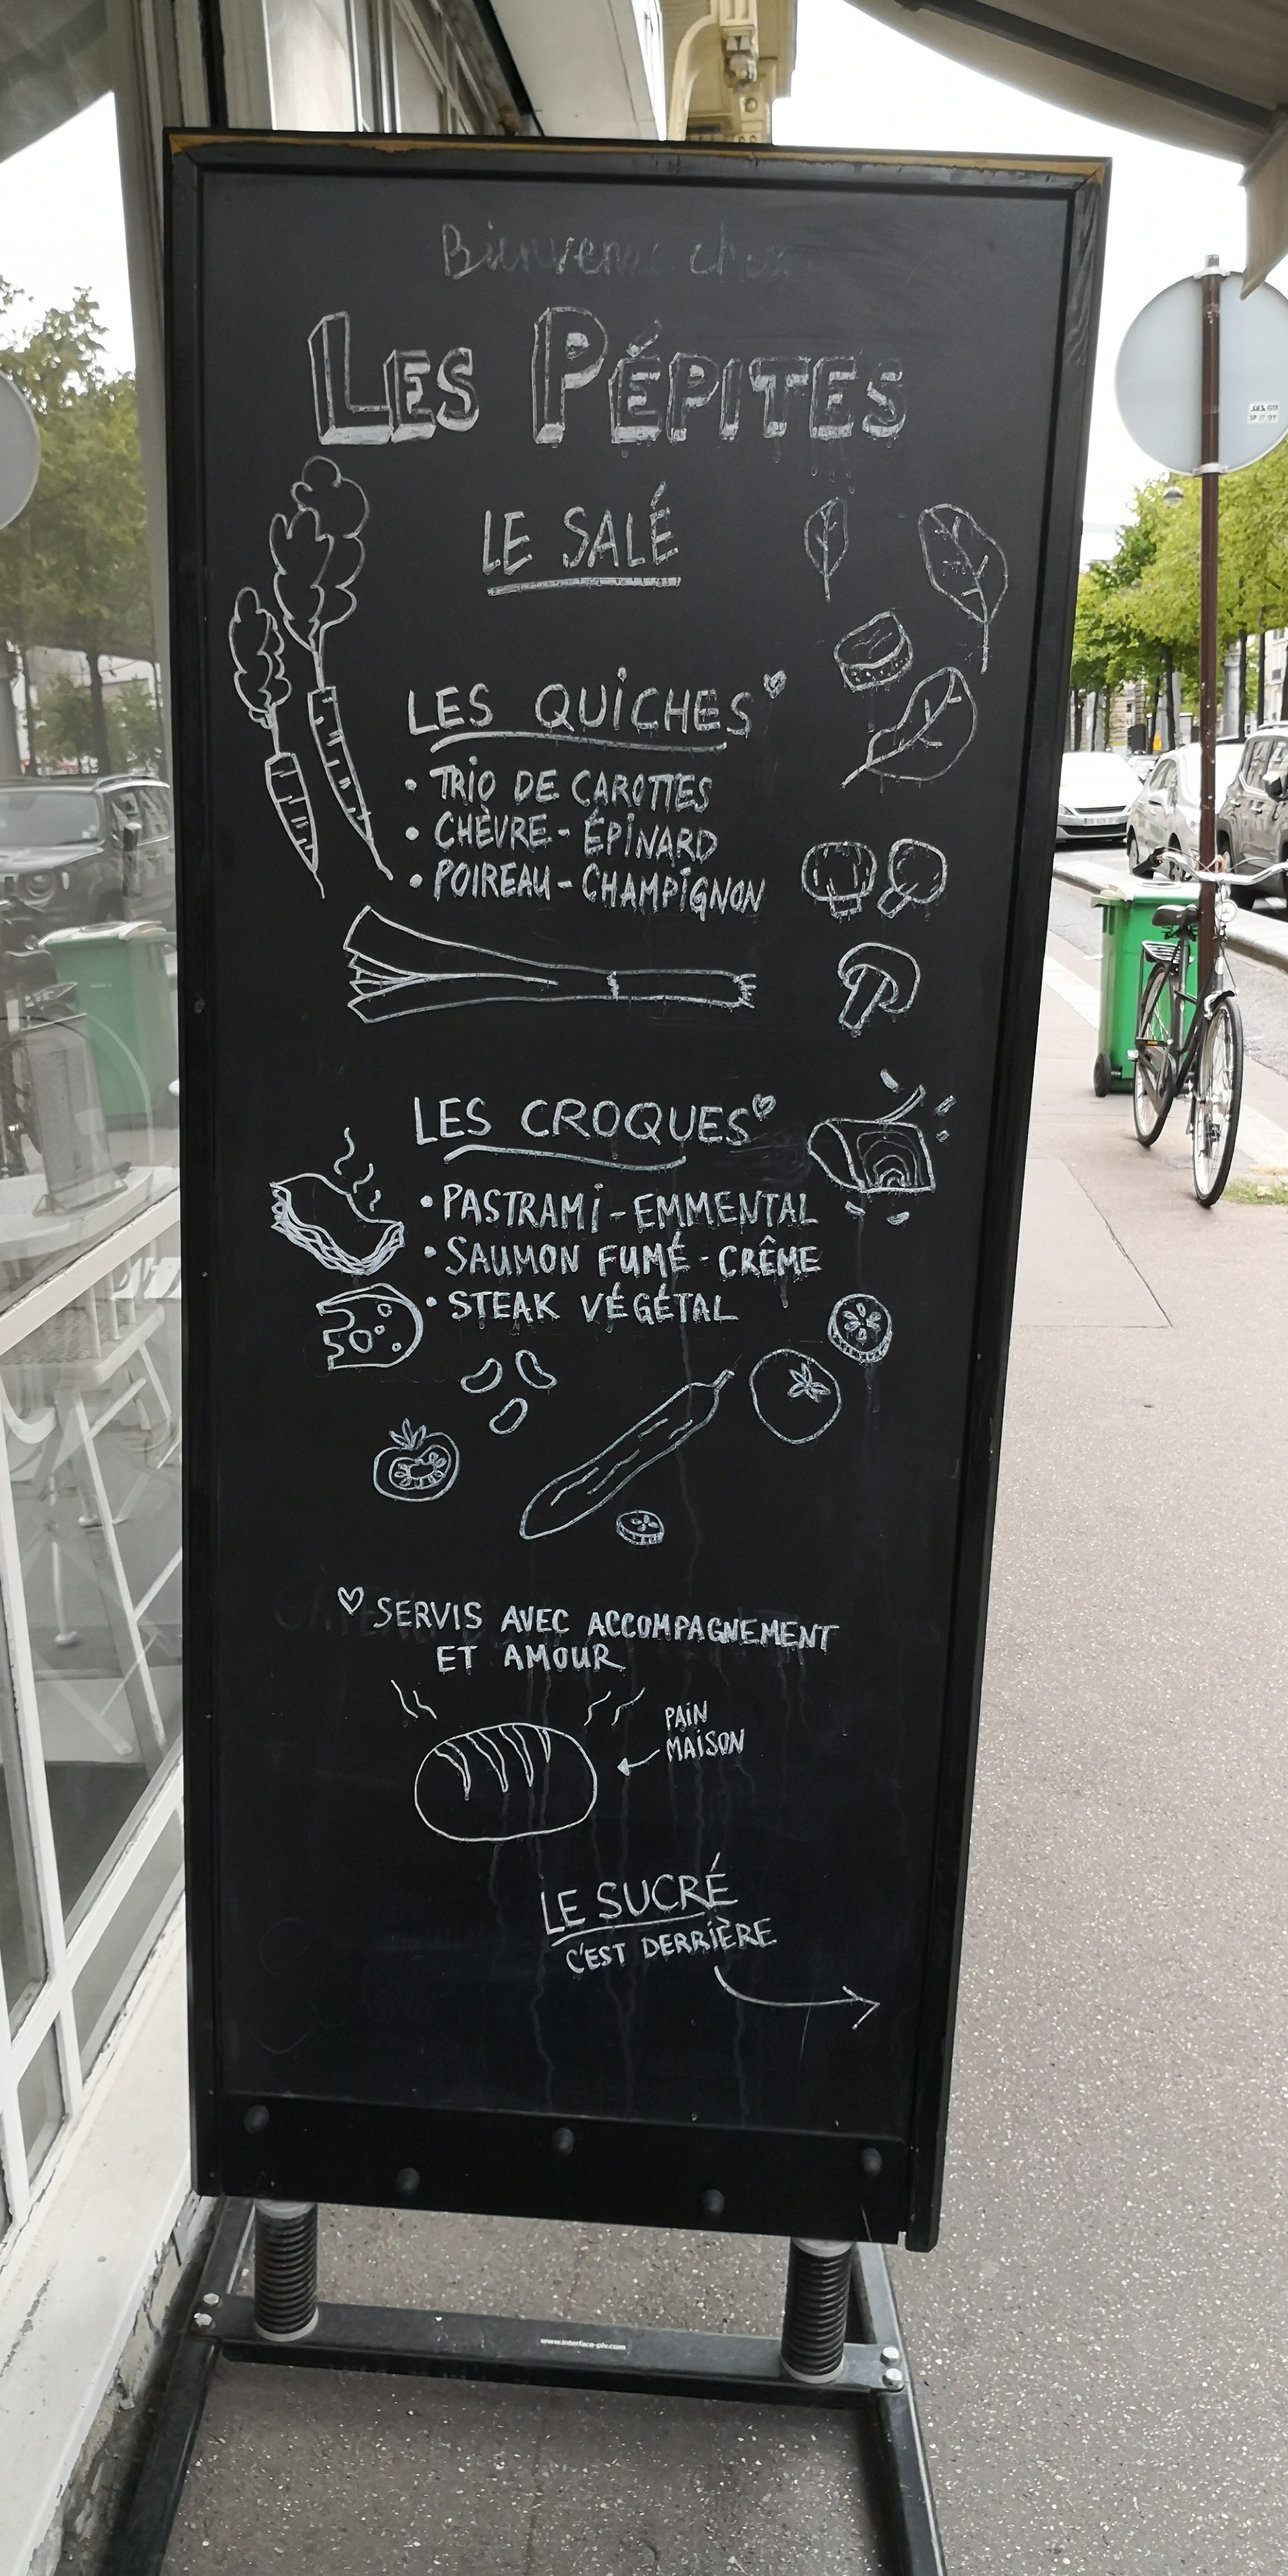 Bienvenue chez
LES PÉPITES
LE SALÉ
LES QUICHES
• TRIO DE CAROTTES
• CHÈVRE - ÉPINARD
• POIREAU - CHAMPIGNON
LES CROQUES
• PASTRAMI - EMMENTAL
• SAUMON FUMÉ - CRÊME
• STEAK VÉGÉTAL
♡ SERVIS AVEC ACCOMPAGNEMENT
ET AMOUR
PAIN
MAISON
LE SUCRÉ
C'EST DERRIÈRE
www.interface-plv.com